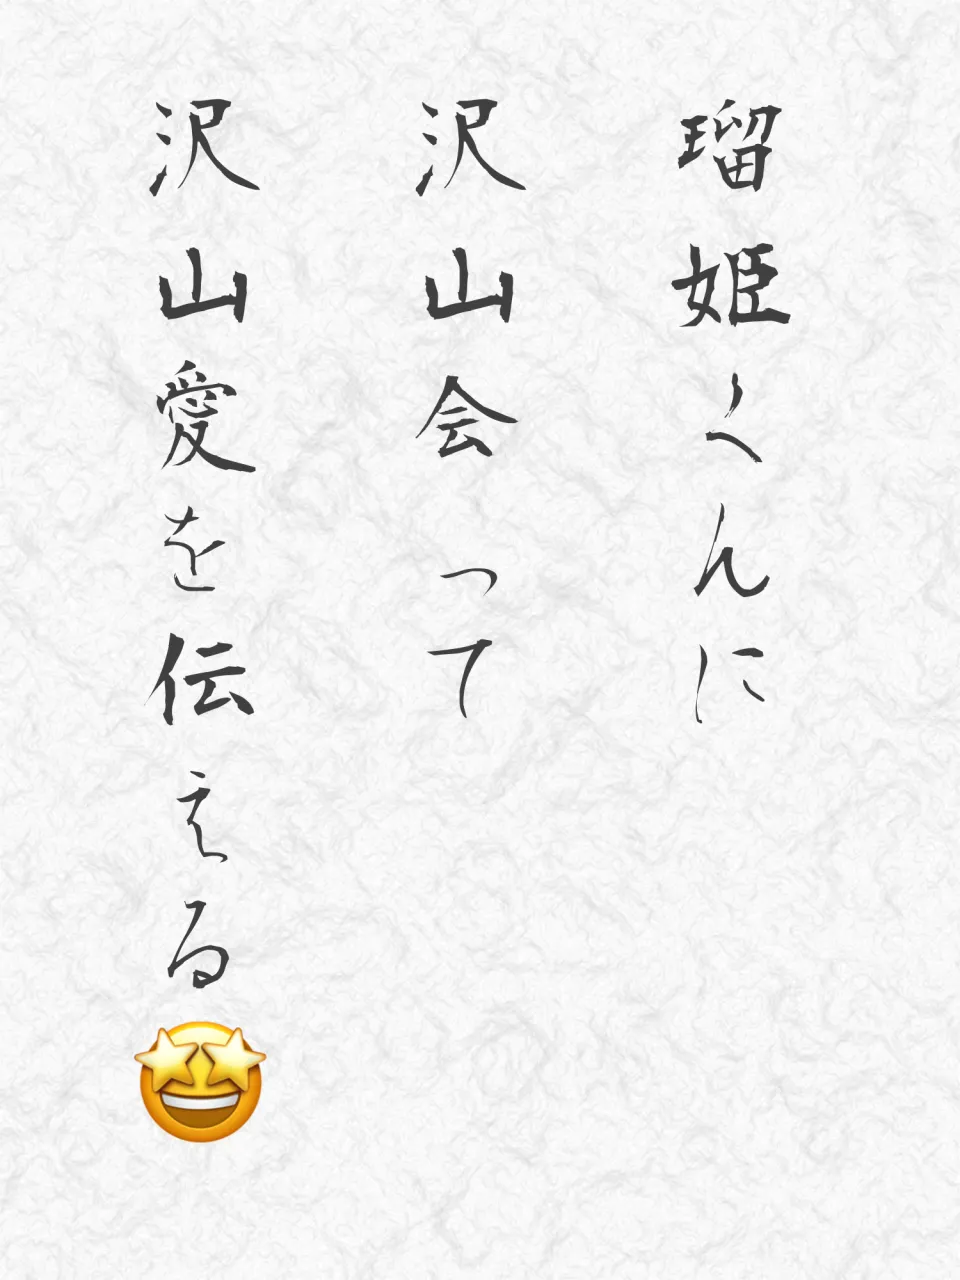 瑠姫くんに
沢山会って
沢山愛を伝える🤩